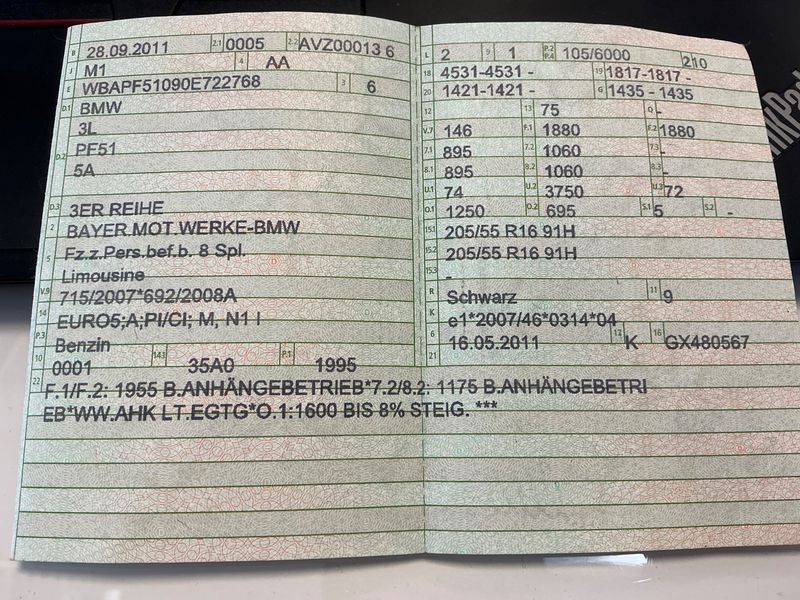 B 28.09.2011 2.1 0005 2.2 AVZ00013 6
J M1 4 AA
E WBAPF51090E722768 3 6
D.1 BMW
3L
D.2 PF51
5A
D.3 3ER REIHE
2 BAYER.MOT.WERKE-BMW
5 Fz.z.Pers.bef.b. 8 Spl.
Limousine
V.9 715/2007*692/2008A
14 EURO5;A;PI/CI; M, N1 I
P.3 Benzin
10 0001 14.1 35A0 P.1 1995
22 F.1/F.2: 1955 B.ANHÄNGEBETRIEB*7.2/8.2: 1175 B.ANHÄNGEBETRI
EB*WW.AHK LT.EGTG*O.1:1600 BIS 8% STEIG. ***
L 2 9 1 P.2 P.4 105/6000 210
18 4531-4531 - 19 1817-1817 -
20 1421-1421 - G 1435 - 1435
12 - 13 75 Q -
V.7 146 F.1 1880 F.2 1880
7.1 895 7.2 1060 7.3 -
8.1 895 8.2 1060 8.3 -
U.1 74 U.2 3750 U.3 72
O.1 1250 O.2 695 S.1 5 S.2 -
15.1 205/55 R16 91H
15.2 205/55 R16 91H
15.3 -
R Schwarz 11 9
K e1*2007/46*0314*04
6 16.05.2011 17 K 16 GX480567
21